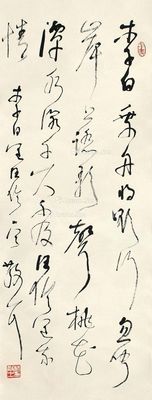 李白乘舟將欲行忽聞
岸上踏歌聲桃花
潭水深千尺不及汪倫送我
情
李白汪倫